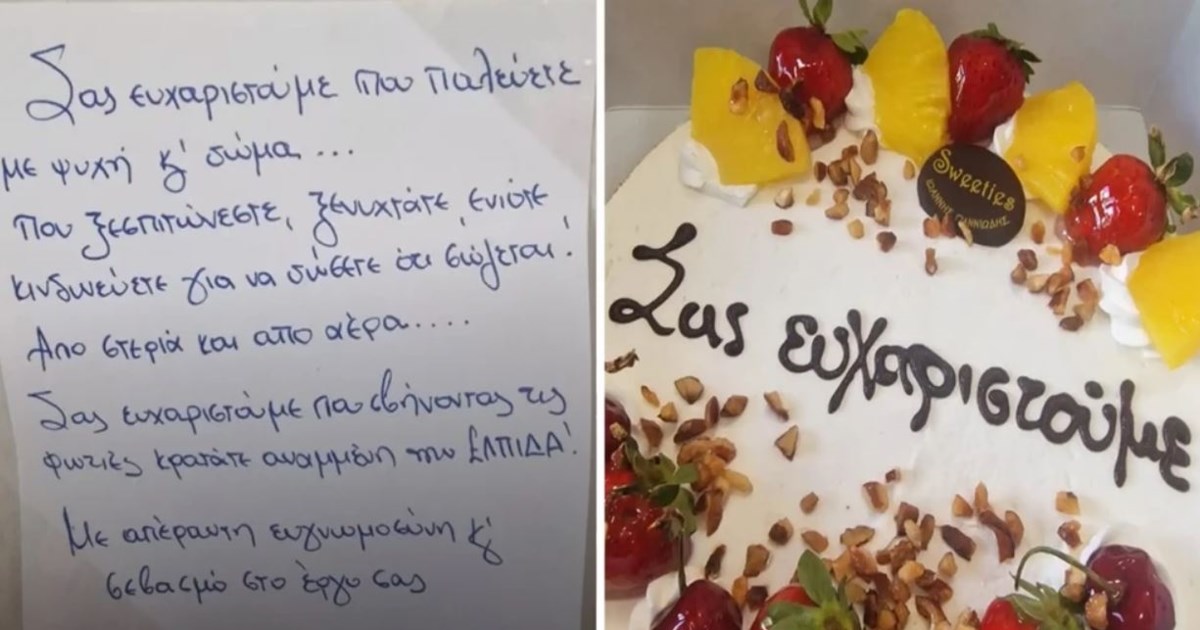 Σας ευχαριστούμε που παλεύετε
με ψυχή κ' σώμα...
που ξεσπιτώνεστε, ξενυχτάτε, ενίοτε
κινδυνεύετε για να σώσετε ότι σώζεται!
Απο στεριά και απο αέρα....
Σας ευχαριστούμε που σβήνοντας τις
φωτιές κρατάτε αναμμένη την ΕΛΠΙΔΑ!
Με απέραντη ευγνωμοσύνη κ'
σεβασμό στο έργο σας
Sweeties
ΙΩΑΝΝΗΣ ΓΙΑΝΝΙΩΔΗΣ
Σας ευχαριστούμε